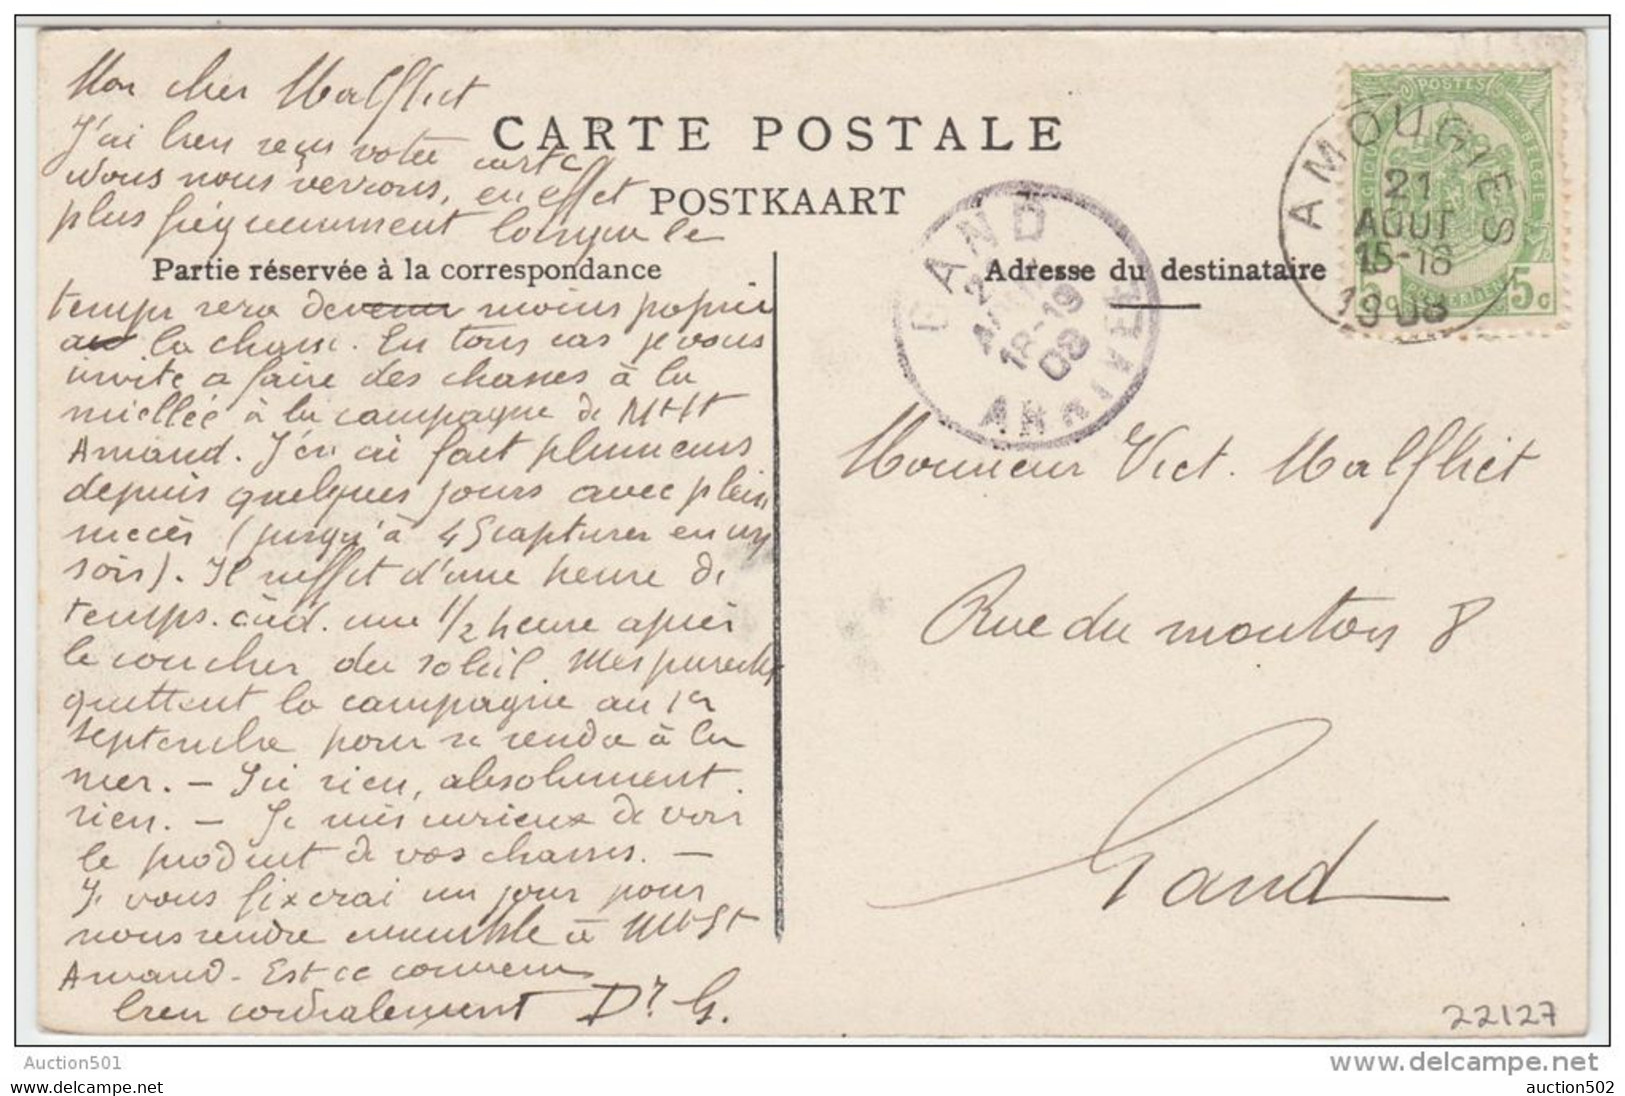 Mon cher Malfliet
J'ai bien reçu votre carte
Nous nous verrons, en effet
plus fréquemment lorsque le
CARTE POSTALE
POSTKAART
Partie réservée à la correspondance
Adresse du destinataire
temps sera devenu moins propice
au la chasse. En tous cas je vous
invite a faire des chasses à la
miellée à la campagne de Mt St
Amand. J'en ai fait plusieurs
depuis quelques jours avec plein
succès (jusqu'à 45 captures en un
soir). Il suffit d'une heure de
temps. càd. une 1/2 heure après
le coucher du soleil. Mes parents
quittent la campagne au 1er
septembre pour se rendre à la
mer. - J'ai rien, absolument
rien. - Je suis curieux de voir
le produit de vos chasses. -
Je vous fixerai un jour pour
nous rendre ensemble à Mt St
Amand - Est ce convenu
bien cordialement Dr. G.
GAND
AOUT
18-19
08
ARRIVEE
AMOUGIES
21
AOUT
15-16
1908
POSTES
BELGIE
5 c
Monsieur Vict. Malfliet
Rue du mouton 8
Gand
22127
Auction501
www.delcampe.net
auction502
www.delcampe.net